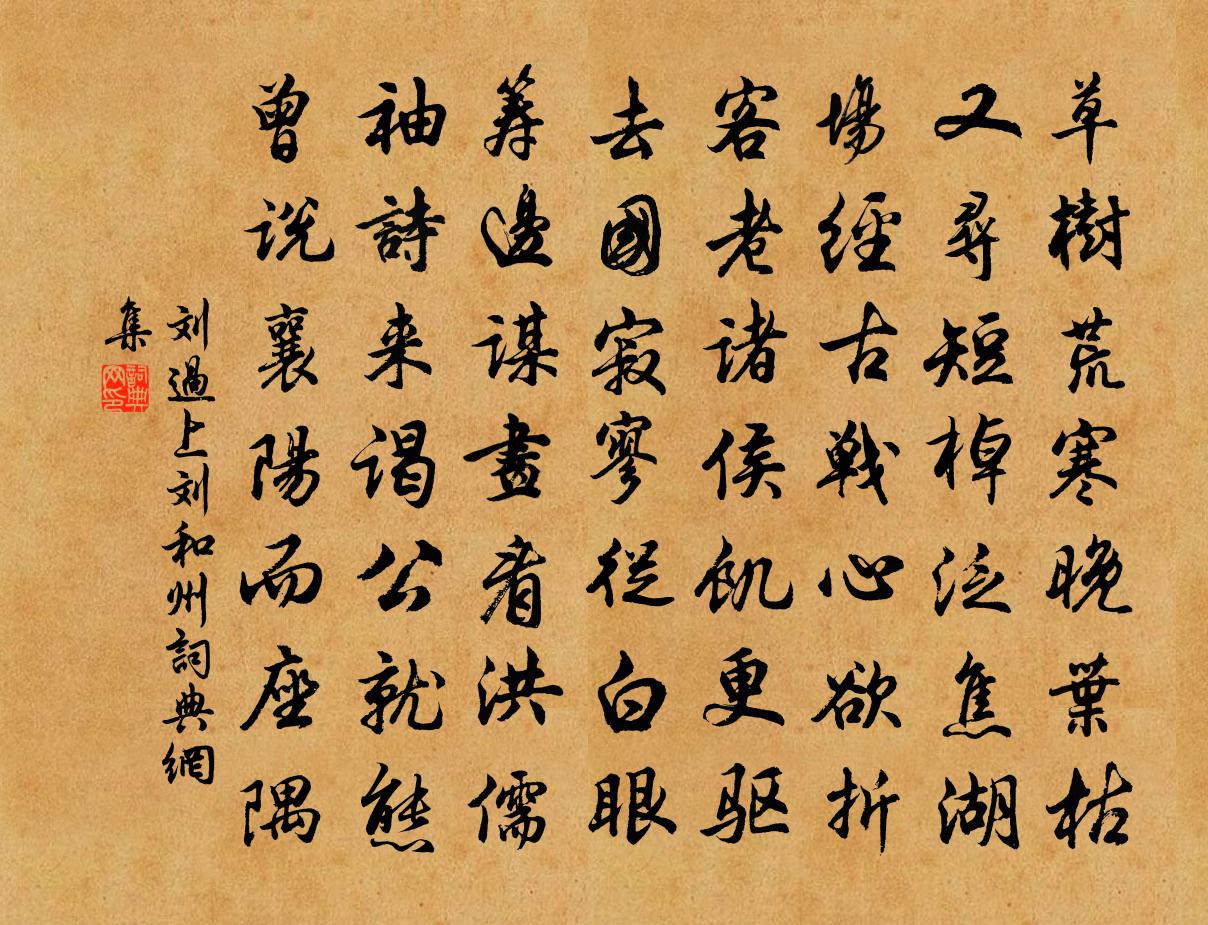 草樹荒寒晚葉枯
又尋短棹泛焦湖
場經古戦心欲折
客老諸侯飢更驱
去國寂寥從白眼
筹邊謀畫看洪儒
袖詩来谒公就熊
曾说襄陽而座隅
刘過上刘和州詞典網
集
詞典網印